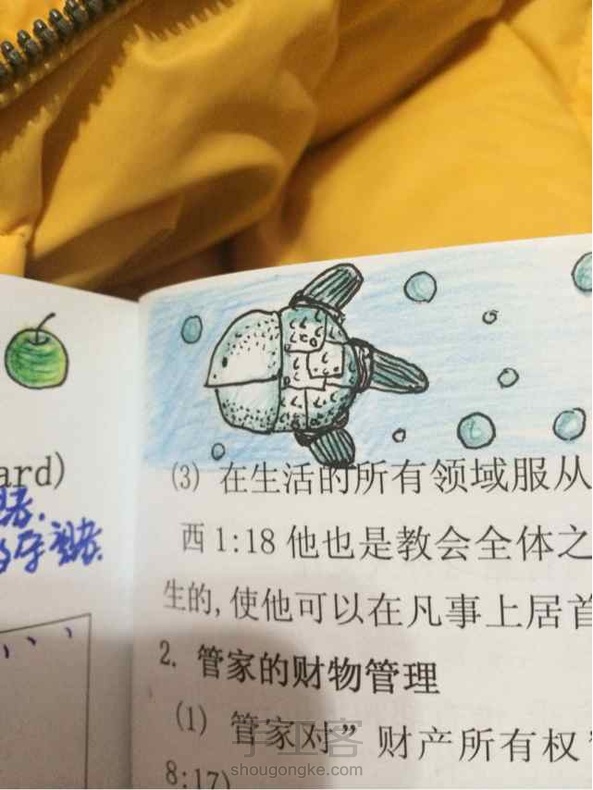 ard)
(3) 在生活的所有领域服从
西 1:18 他也是教会全体之
生的,使他可以在凡事上居首
2. 管家的财物管理
(1) 管家对”财产所有权
8:17)
手工客
shougongke.com